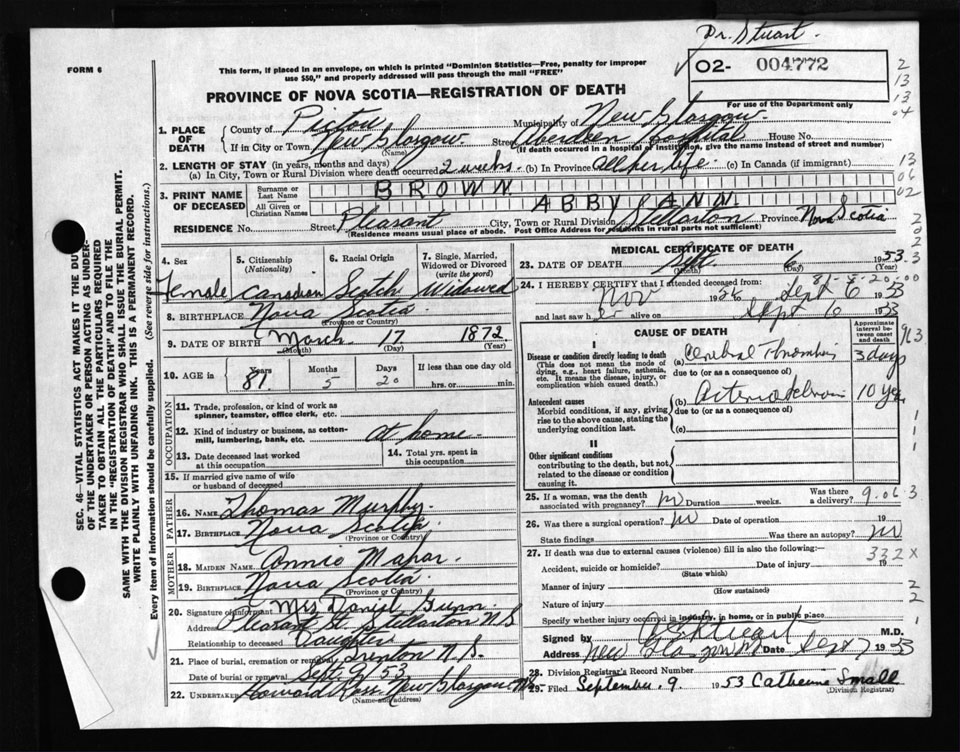 Dr. Stuart.
FORM 6
This form, if placed in an envelope, on which is printed "Dominion Statistics—Free, penalty for improper
use $50," and properly addressed will pass through the mail "FREE"
02- 004772
2
13
13
04
PROVINCE OF NOVA SCOTIA—REGISTRATION OF DEATH
For use of the Department only
1. PLACE OF DEATH
County of Pictou Municipality of New Glasgow
If in City or Town New Glasgow Street Aberdeen Hospital House No.
(Name) (If death occurred in a hospital or institution, give the name instead of street and number)
2. LENGTH OF STAY (in years, months and days)
(a) In City, Town or Rural Division where death occurred 2 weeks (b) In Province all her life (c) In Canada (if immigrant)
13
06
02
3. PRINT NAME OF DECEASED
Surname or Last Name BROWN
All Given or Christian Names ABBY ANN
RESIDENCE No. Street Pleasant City, Town or Rural Division Stellarton Province Nova Scotia
(Residence means usual place of abode. Post Office Address for residents in rural parts not sufficient)
4. Sex Female
5. Citizenship (Nationality) Canadian
6. Racial Origin Scotch
7. Single, Married, Widowed or Divorced (write the word) Widowed
8. BIRTHPLACE Nova Scotia
(Province or Country)
9. DATE OF BIRTH March 17 1872
(Month) (Day) (Year)
10. AGE in Years 81 Months 5 Days 20 If less than one day old
hrs. or min.
OCCUPATION
11. Trade, profession, or kind of work as
spinner, teamster, office clerk, etc.
12. Kind of industry or business, as cotton-
mill, lumbering, bank, etc. At home
13. Date deceased last worked
at this occupation
14. Total yrs. spent in
this occupation
15. If married give name of wife
or husband of deceased
FATHER
16. NAME Thomas Murphy
17. BIRTHPLACE Nova Scotia
(Province or Country)
MOTHER
18. MAIDEN NAME Annie
19. BIRTHPLACE Nova Scotia
(Province or Country)
20. Signature of informant Mrs Daniel Gunn
Address Pleasant St. Stellarton N.S
Relationship to deceased Daughter
21. Place of burial, cremation or removal Trenton N.S.
Date of burial or removal Sept. 9/53
22. Undertaker Howard Ross New Glasgow N.S.
(Name and address)
MEDICAL CERTIFICATE OF DEATH
23. DATE OF DEATH Sept 6 1953
(Month) (Day) (Year)
81-5-20
24. I HEREBY CERTIFY that I attended deceased from:
Nov Sept 6 1953
and last saw her alive on Sept 6 1953
CAUSE OF DEATH
Approximate interval between onset and death
I
Disease or condition directly leading to death
(This does not mean the mode of
dying, e.g., heart failure, asthenia,
etc. It means the disease, injury, or
complication which caused death.)
(a) Cerebral Thrombosis 3 days
due to (or as a consequence of)
Antecedent causes
Morbid conditions, if any, giving
rise to the above cause, stating the
underlying condition last.
(b) Arteriosclerosis 10 yrs.
due to (or as a consequence of)
(c)
II
Other significant conditions
contributing to the death, but not
related to the disease or condition
causing it.
25. If a woman, was the death
associated with pregnancy? no Duration weeks. Was there
a delivery? 9.063
26. Was there a surgical operation? no Date of operation 19
State findings Was there an autopsy? no
27. If death was due to external causes (violence) fill in also the following:— 332X
Accident, suicide or homicide? Date of injury 19
(State which)
Manner of injury
(How sustained)
Nature of injury
Specify whether injury occurred in industry, in home, or in public place
Signed by Stuart M.D.
Address New Glasgow Date Sept 7 1953
28. Division Registrar's Record Number
29. Filed September 9 1953 Catherine Small
(Division Registrar)
SEC. 46—VITAL STATISTICS ACT MAKES IT THE DUTY
OF THE UNDERTAKER OR PERSON ACTING AS UNDER-
TAKER TO OBTAIN ALL THE PARTICULARS REQUIRED
IN THE "REGISTRATION OF DEATH" AND TO FILE THE
SAME WITH THE DIVISION REGISTRAR WHO SHALL ISSUE THE BURIAL PERMIT.
WRITE PLAINLY WITH UNFADING INK. THIS IS A PERMANENT RECORD.
Every item of information should be carefully supplied. (See reverse side for instructions.)